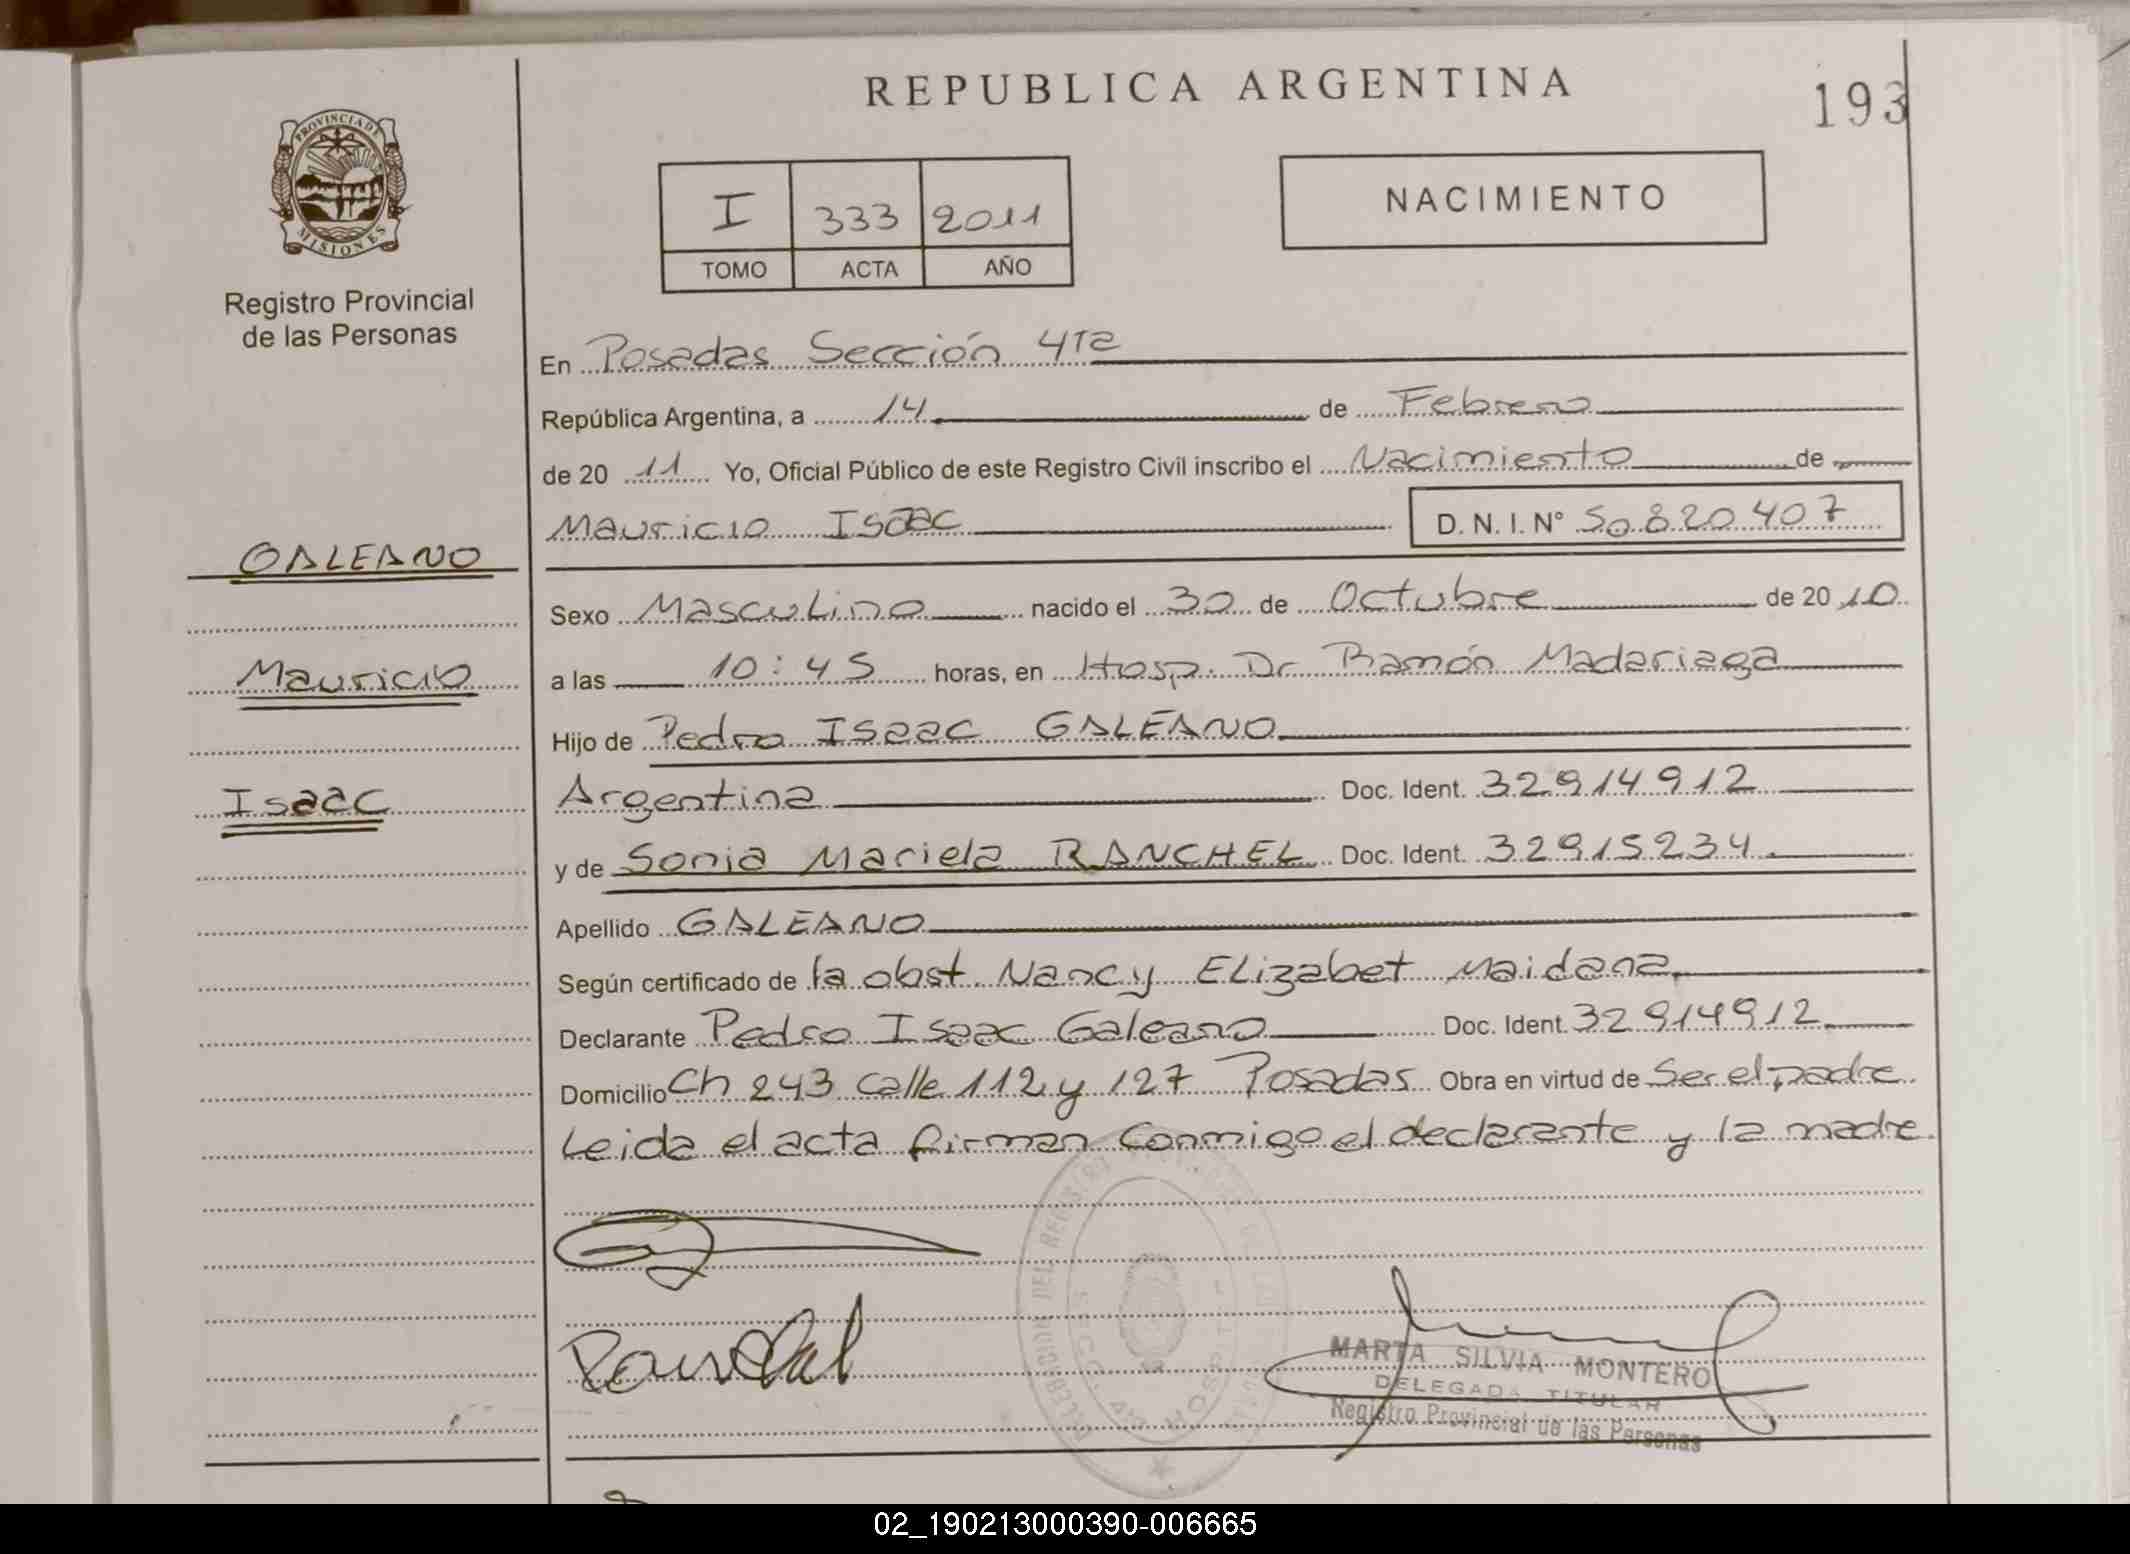 REPUBLICA ARGENTINA
193
PROVINCIA DE
MISIONES
Registro Provincial
de las Personas
I 333 2011
TOMO ACTA AÑO
NACIMIENTO
En Posadas Sección 4ta
República Argentina, a 14 de Febrero
de 20 11 Yo, Oficial Público de este Registro Civil inscribo el Nacimiento de
Mauricio Isaac D. N. I. N° 50820407
GALEANO
Mauricio
Isaac
Sexo Masculino nacido el 30 de Octubre de 20 10
a las 10:45 horas, en Hosp. Dr Ramón Madariaga
Hijo de Pedro Isaac GALEANO
Argentina Doc. Ident. 32914912
y de Sonia Mariela RANCHEL Doc. Ident. 32915234
Apellido GALEANO
Según certificado de la obst. Nancy Elizabet Maidana
Declarante Pedro Isaac Galeano Doc. Ident. 32914912
Domicilio Ch 243 calle 112 y 127 Posadas Obra en virtud de Ser el padre
Leida el acta firman conmigo el declarante y la madre.
MARTA SILVIA MONTERO
DELEGADA TITULAR
Registro Provincial de las Personas
02_190213000390-006665